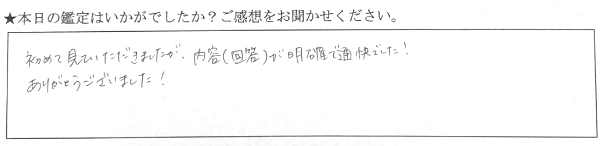 ★本日の鑑定はいかがでしたか？ご感想をお聞かせください。
初めて見ていただきましたが、内容(回答)が明確で通快でした！
ありがとうございました！